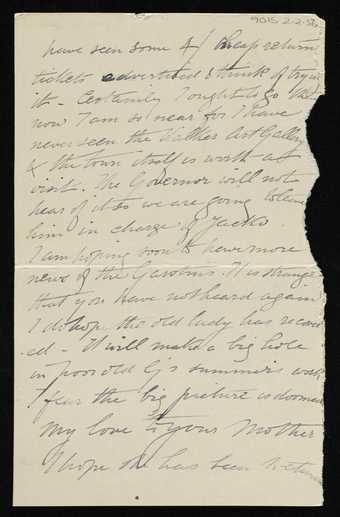 9015.2.2.
have seen some 4/ cheap return
tickets advertised & think of trying
it – Certainly I ought to go there
now I am so near for I have
never seen the Walker Art Gallery
& the town itself is worth a
visit. The Governor will not
hear of it so we are going to leave
him in charge of Jacko.
I am hoping soon to have more
news of the Garstins. It is strange
that you have not heard again
I do hope the old lady has recover
ed – It will make a big hole
in poor old G's summers work
I fear the big picture is doomed
My love to your Mother
I hope she has been